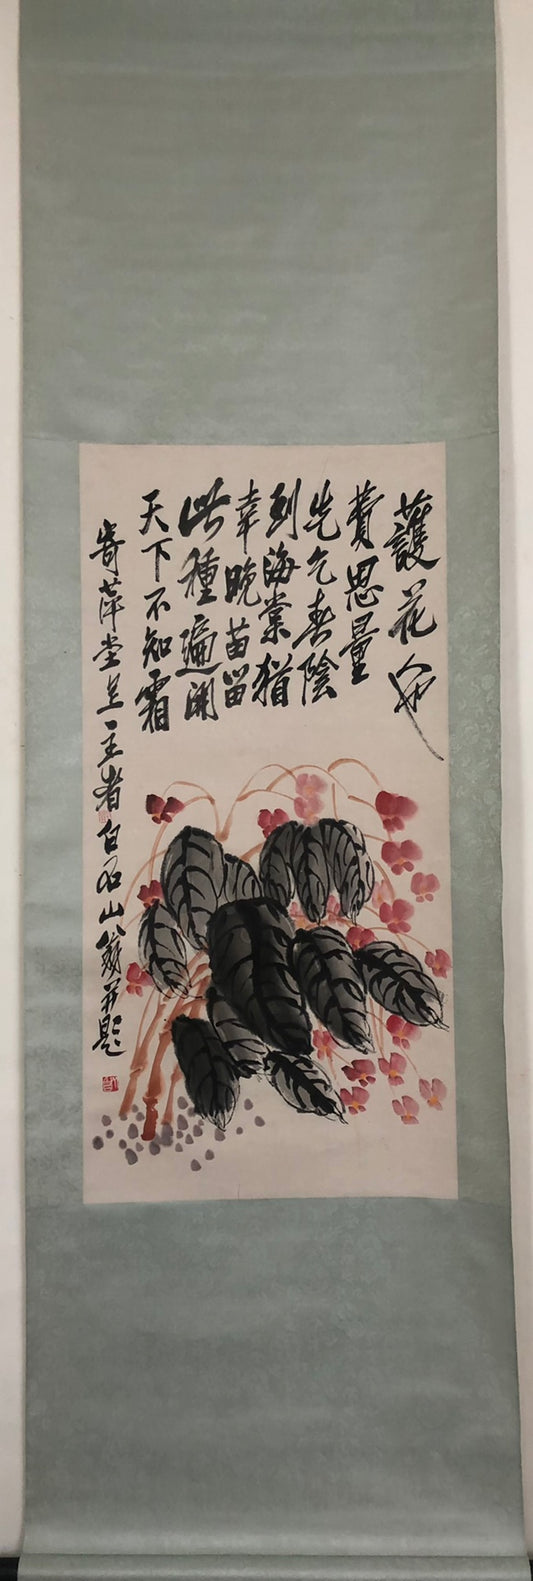 護花何
費思量
先乞春陰
到海棠猶
幸晚苗留
此種遍開
天下不知霜
寄萍堂上一主者白石山翁并題